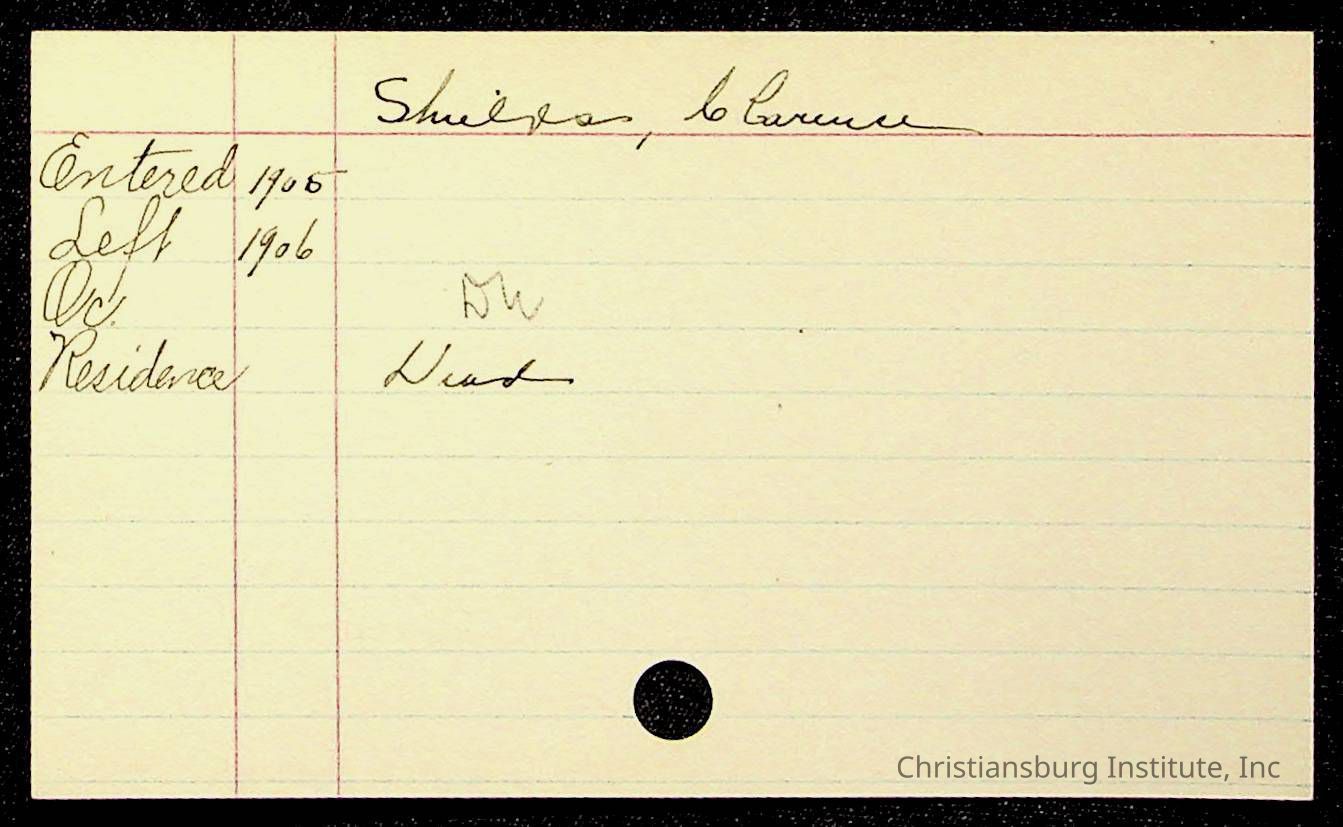 Shields, Clarence
Entered 1905
Left 1906
Oc.
DW
Residence Dead
Christiansburg Institute, Inc